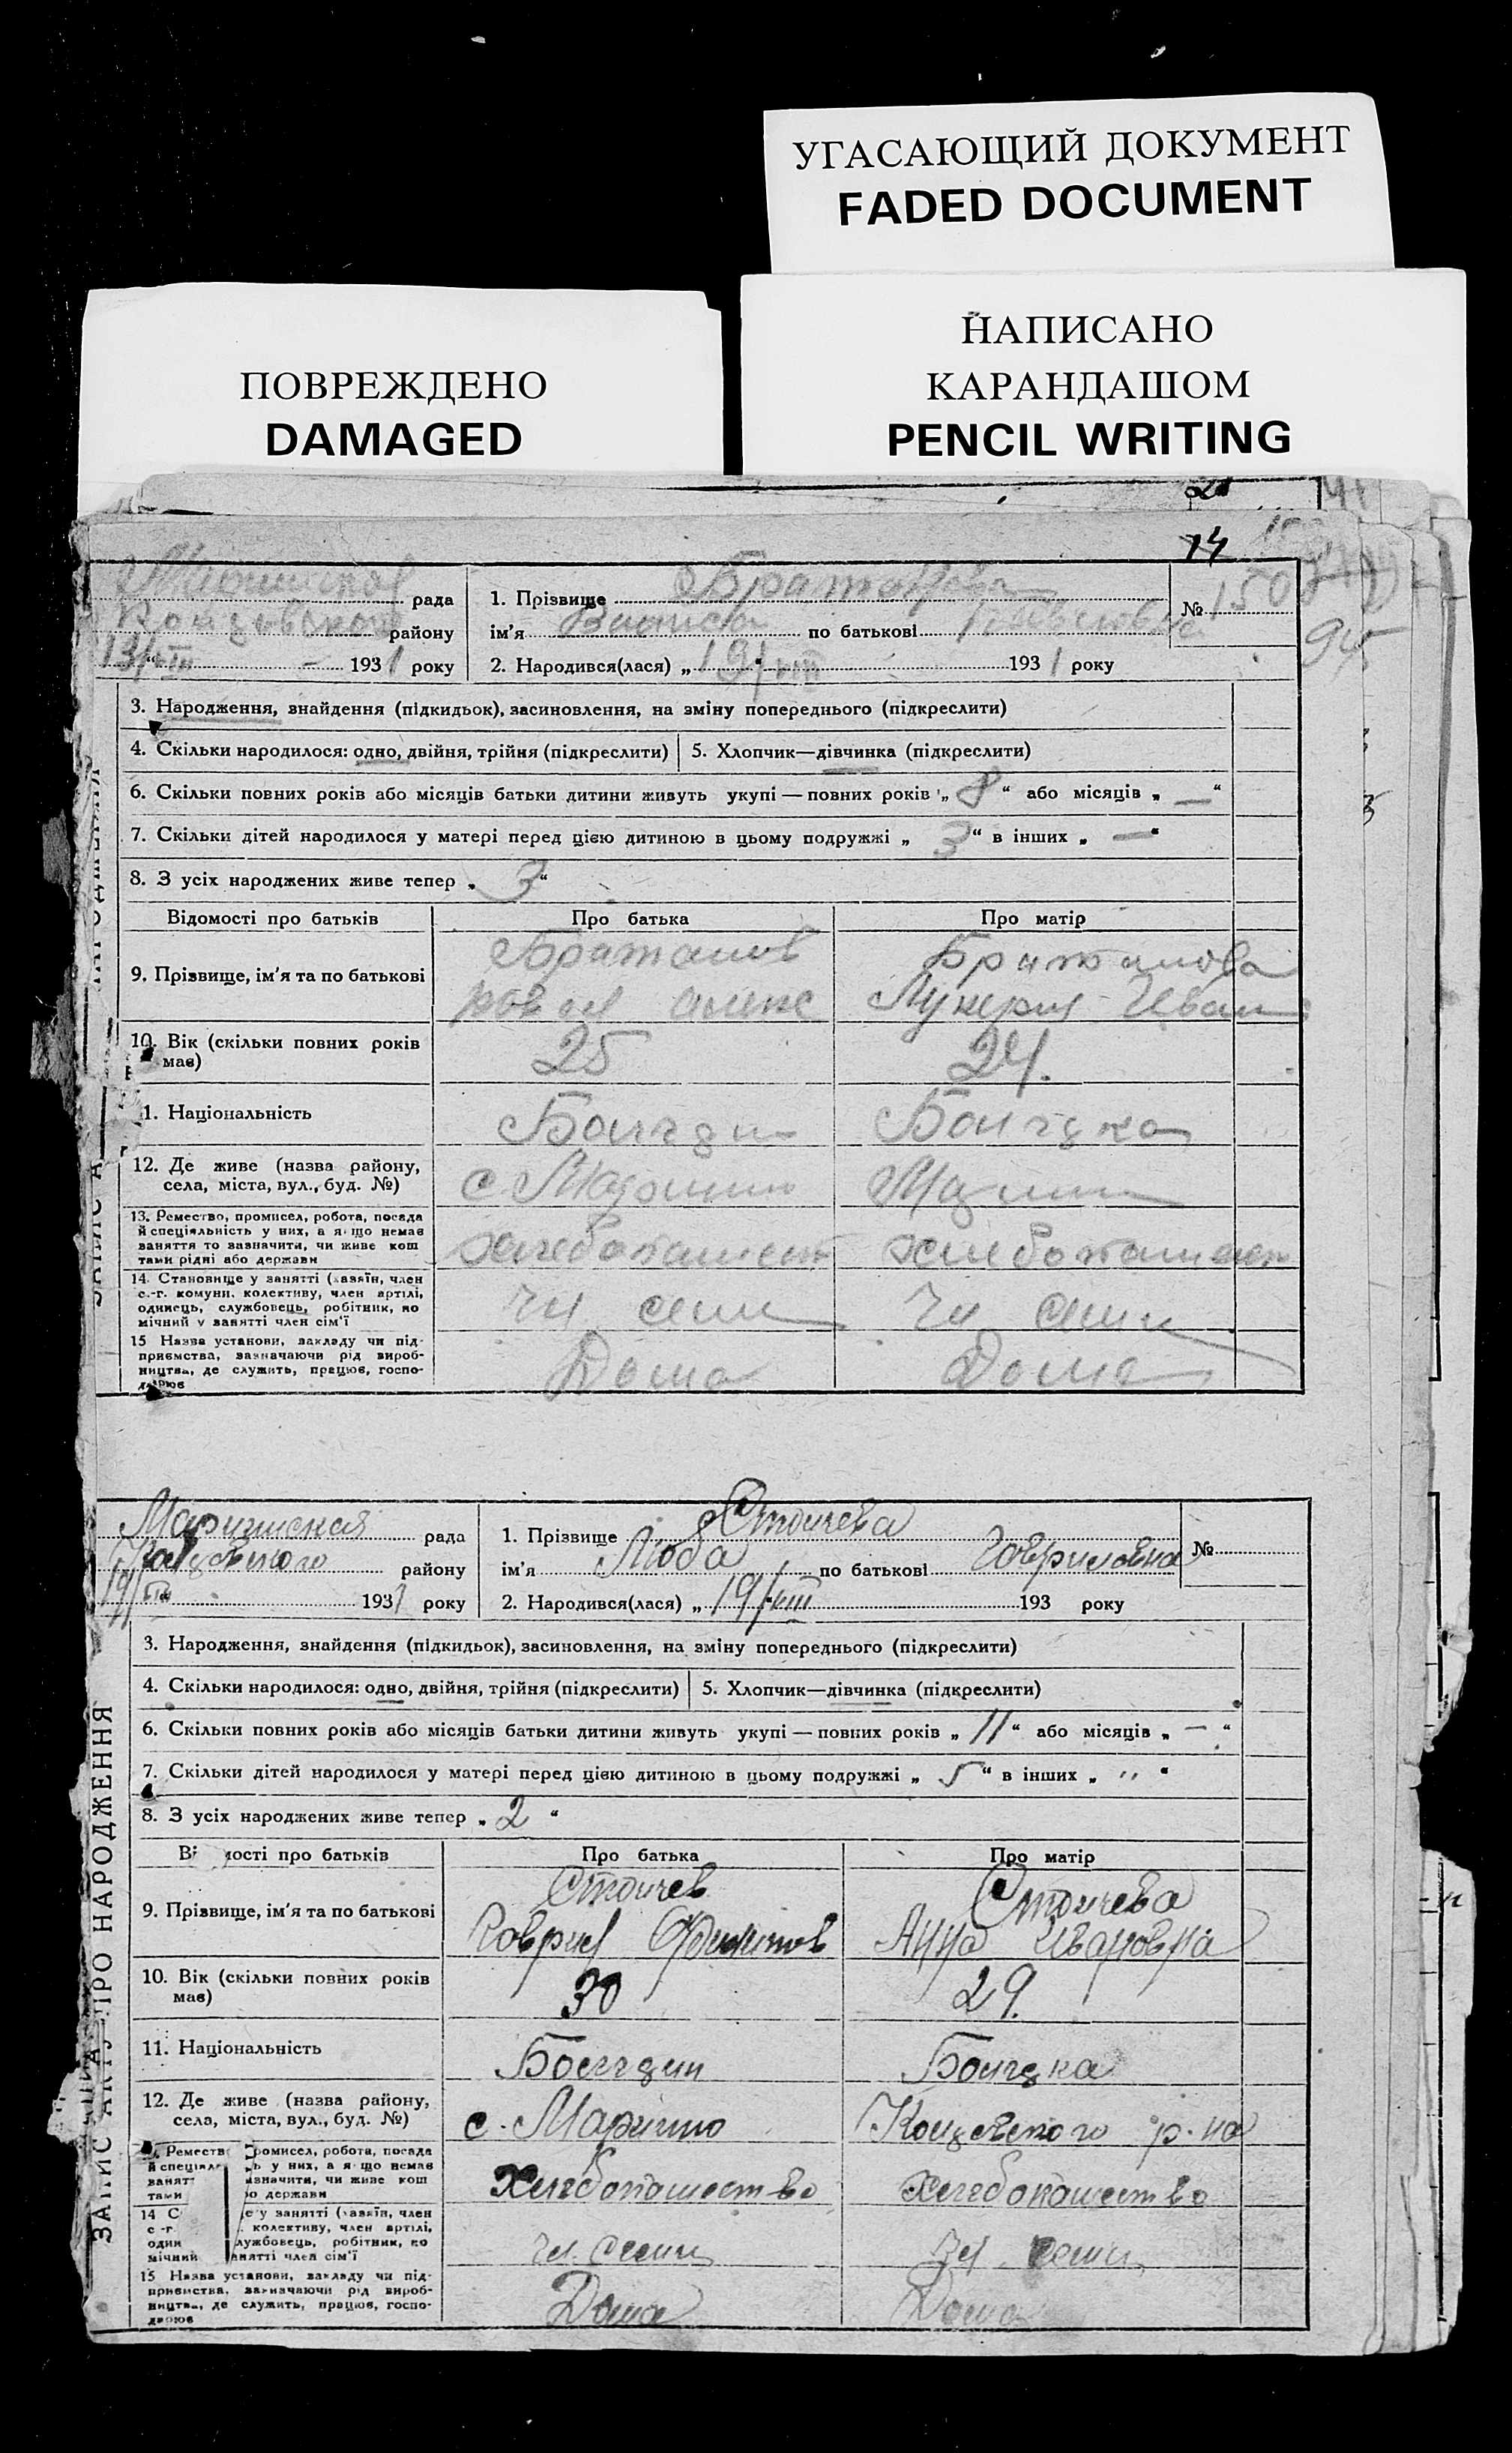 УГАСАЮЩИЙ ДОКУМЕНТ
FADED DOCUMENT
ПОВРЕЖДЕНО
DAMAGED
НАПИСАНО
КАРАНДАШОМ
PENCIL WRITING
14
рада
району
13/VIII 1931 року
1. Прізвище
ім'я по батькові Павловна
2. Народився(лася) „ 13/VIII 1931 року
№ 150
94
3. Народження, знайдення (підкидьок), засиновлення, на зміну попереднього (підкреслити)
4. Скільки народилося: одно, двійня, трійня (підкреслити) 5. Хлопчик—дівчинка (підкреслити)
6. Скільки повних років або місяців батьки дитини живуть укупі — повних років „ 8 “ або місяців „ — “
7. Скільки дітей народилося у матері перед цією дитиною в цьому подружжі „ 3 “ в інших „ — “
8. З усіх народжених живе тепер „ 3 “
Відомості про батьків Про батька Про матір
9. Прізвище, ім'я та по батькові Братанов Братанова
Лукерия Иван
10. Вік (скільки повних років має) 25 24.
11. Національність Болгдин Болгдка
12. Де живе (назва району, села, міста, вул., буд. №) с. Марино Марино
13. Ремество, промисел, робота, посада
й спеціяльність у них, а якщо немає
заняття то зазначити, чи живе кош
тами рідні або держави
хлебопашест хлебопашест
14. Становище у занятті (хазяїн, член
с.-г. комуни, колективу, член артілі,
одинець, службовець, робітник, по
мічний у занятті член сім'ї
чл семи чл семи
15 Назва установи, закладу чи під-
приємства, зазначаючи рід вироб-
ництва, де служить, працює, госпо-
дарює
Дома Дома
ЗАПИС АКТУ ПРО НАРОДЖЕННЯ
Маринская рада
району
19/VIII 1931 року
1. Прізвище Стоичева
ім'я Люба по батькові Говриловна
2. Народився(лася) „ 19/VIII 193 року
№
3. Народження, знайдення (підкидьок), засиновлення, на зміну попереднього (підкреслити)
4. Скільки народилося: одно, двійня, трійня (підкреслити) 5. Хлопчик—дівчинка (підкреслити)
6. Скільки повних років або місяців батьки дитини живуть укупі — повних років „ 11 “ або місяців „ — “
7. Скільки дітей народилося у матері перед цією дитиною в цьому подружжі „ 5 “ в інших „ " “
8. З усіх народжених живе тепер „ 2 “
Ві мості про батьків Про батька Про матір
9. Прізвище, ім'я та по батькові Стоичев Стоичева
Говрил Анна Ивановна
10. Вік (скільки повних років має) 30 29.
11. Національність Болгдин Болгдка
12. Де живе (назва району, села, міста, вул., буд. №) с. Марино р-на
Реместв ромисел, робота, посада
й спеціял ь у них, а якщо немає
занят азначити, чи живе кош
тами о держави
Хлебопашество Хлебопашество
14 С е у занятті (хазяїн, член
с-г. колективу, член артілі,
один лужбовець, робітник, по
мічний анятті член сім'ї
чл. семи чл. семи
15 Назва установи, закладу чи під-
приємства, зазначаючи рід вироб-
ництва, де служить, працює, госпо-
дарює
Дома Дома